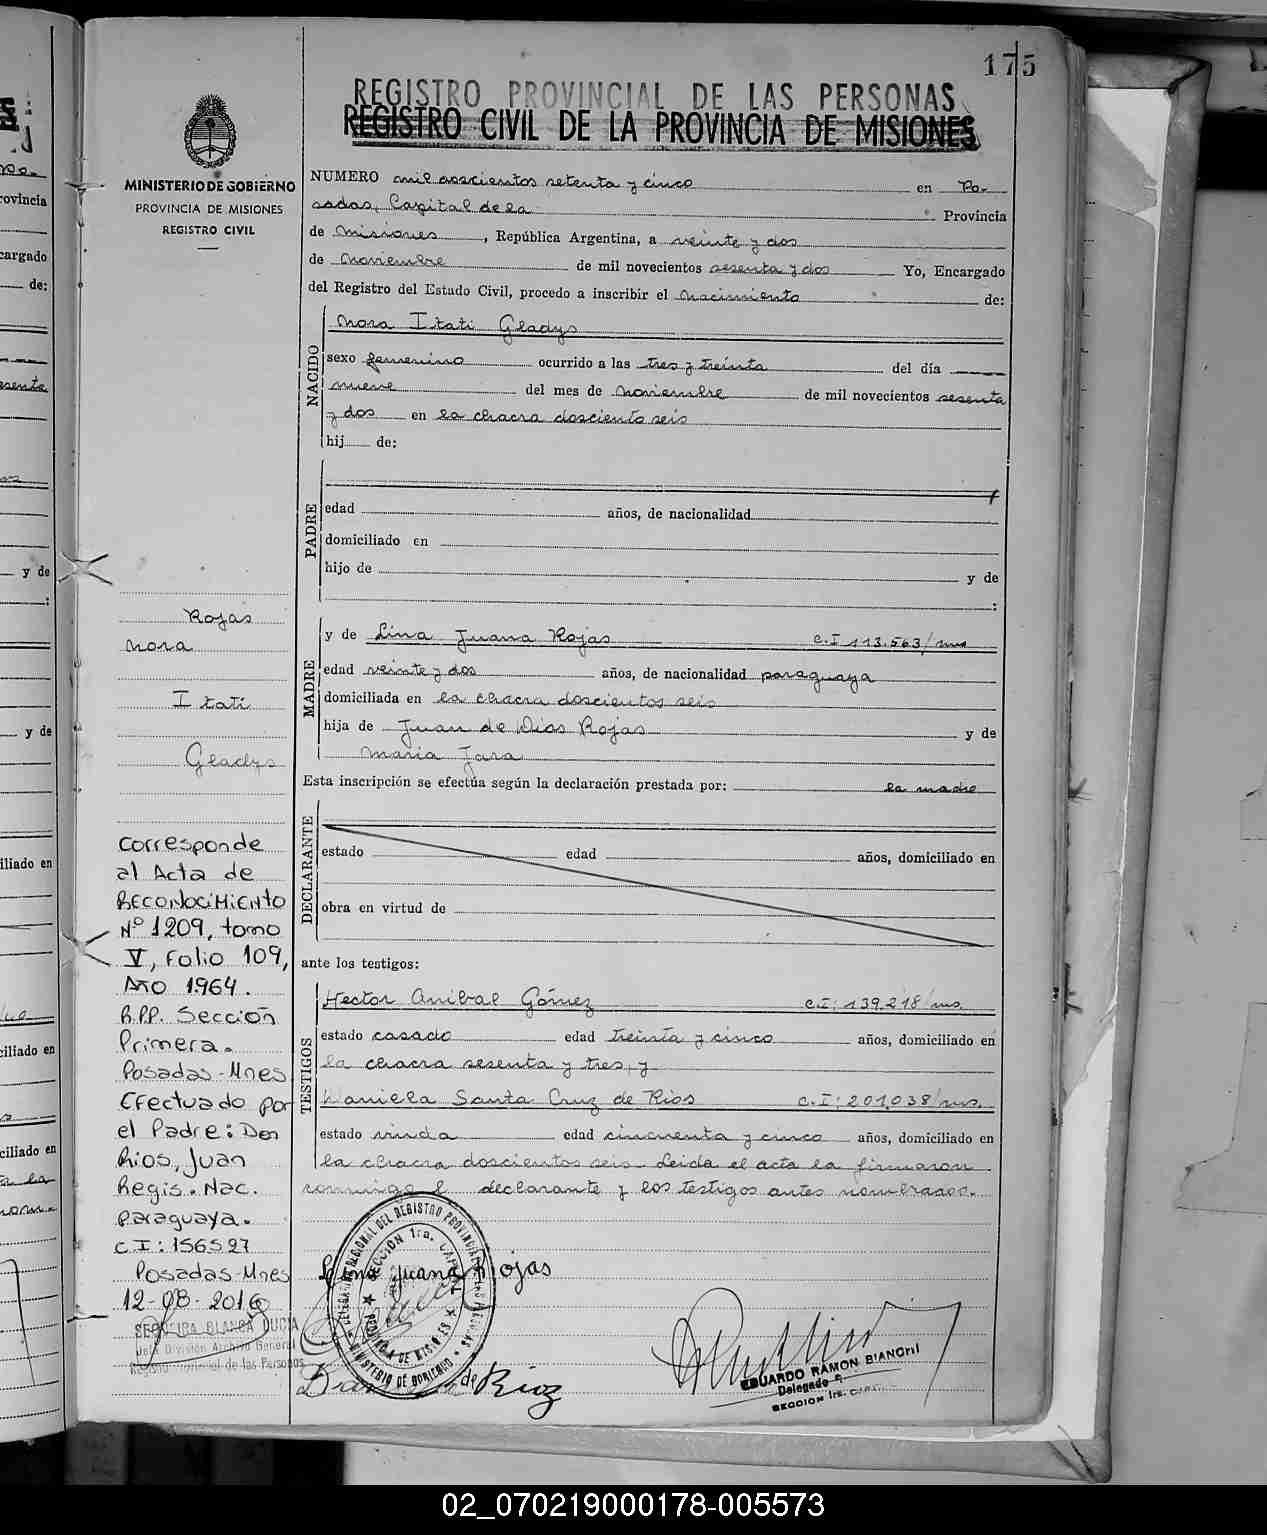 175
REGISTRO PROVINCIAL DE LAS PERSONAS
REGISTRO CIVIL DE LA PROVINCIA DE MISIONES
MINISTERIO DE GOBIERNO
PROVINCIA DE MISIONES
REGISTRO CIVIL
NUMERO mil doscientos setenta y cinco en Po-
sadas, Capital de la Provincia
de Misiones, República Argentina, a veinte y dos
de Noviembre de mil novecientos sesenta y dos Yo, Encargado
del Registro del Estado Civil, procedo a inscribir el Nacimiento de:
NACIDO
Nora Itati Gladys
sexo femenino ocurrido a las tres y treinta del día
nueve del mes de Noviembre de mil novecientos sesenta
y dos en la chacra doscientos seis
hij de:
PADRE
edad años, de nacionalidad
domiciliado en
hijo de y de
:
MADRE
y de Lina Juana Rojas C.I 113.563/mns
edad veinte y dos años, de nacionalidad paraguaya
domiciliada en la chacra doscientos seis
hija de Juan de Dios Rojas y de
Maria Jara
Esta inscripción se efectúa según la declaración prestada por: la madre
DECLARANTE
estado edad años, domiciliado en
obra en virtud de
ante los testigos:
TESTIGOS
Hector Anibal Gómez C.I: 139.218/mns.
estado casado edad treinta y cinco años, domiciliado en
la chacra sesenta y tres, y
Daniela Santa Cruz de Rios C.I: 201.038/mns.
estado viuda edad cincuenta y cinco años, domiciliado en
la chacra doscientos seis. Leida el acta la firmaron
conmigo l declarante y los testigos antes nombrados.
Rojas
Nora
Itati
Gladys
Corresponde
al Acta de
Reconocimiento
Nº 1209, tomo
V, Folio 109,
Año 1964.
R.P.P. Sección
Primera.
Posadas-Mnes
Efectuado por
el Padre: Den
Rios, Juan
Regis. Nac.
paraguaya.
C I: 156527
Posadas-Mnes
12-08-2016
SEQUEIRA BLANCA LUCIA
Jefa División Archivo General
Registro Provincial de las Personas
Lina Juana Rojas
de Rioz
DELEGACION REGIONAL DEL REGISTRO PROVINCIAL DE LAS PERSONAS
SECCION 1ra. CAPITAL
PROVINCIA DE MISIONES
MINISTERIO DE GOBIERNO
EDUARDO RAMON BIANCHI
Delegado
SECCION 1ra. CAPITAL
02_070219000178-005573